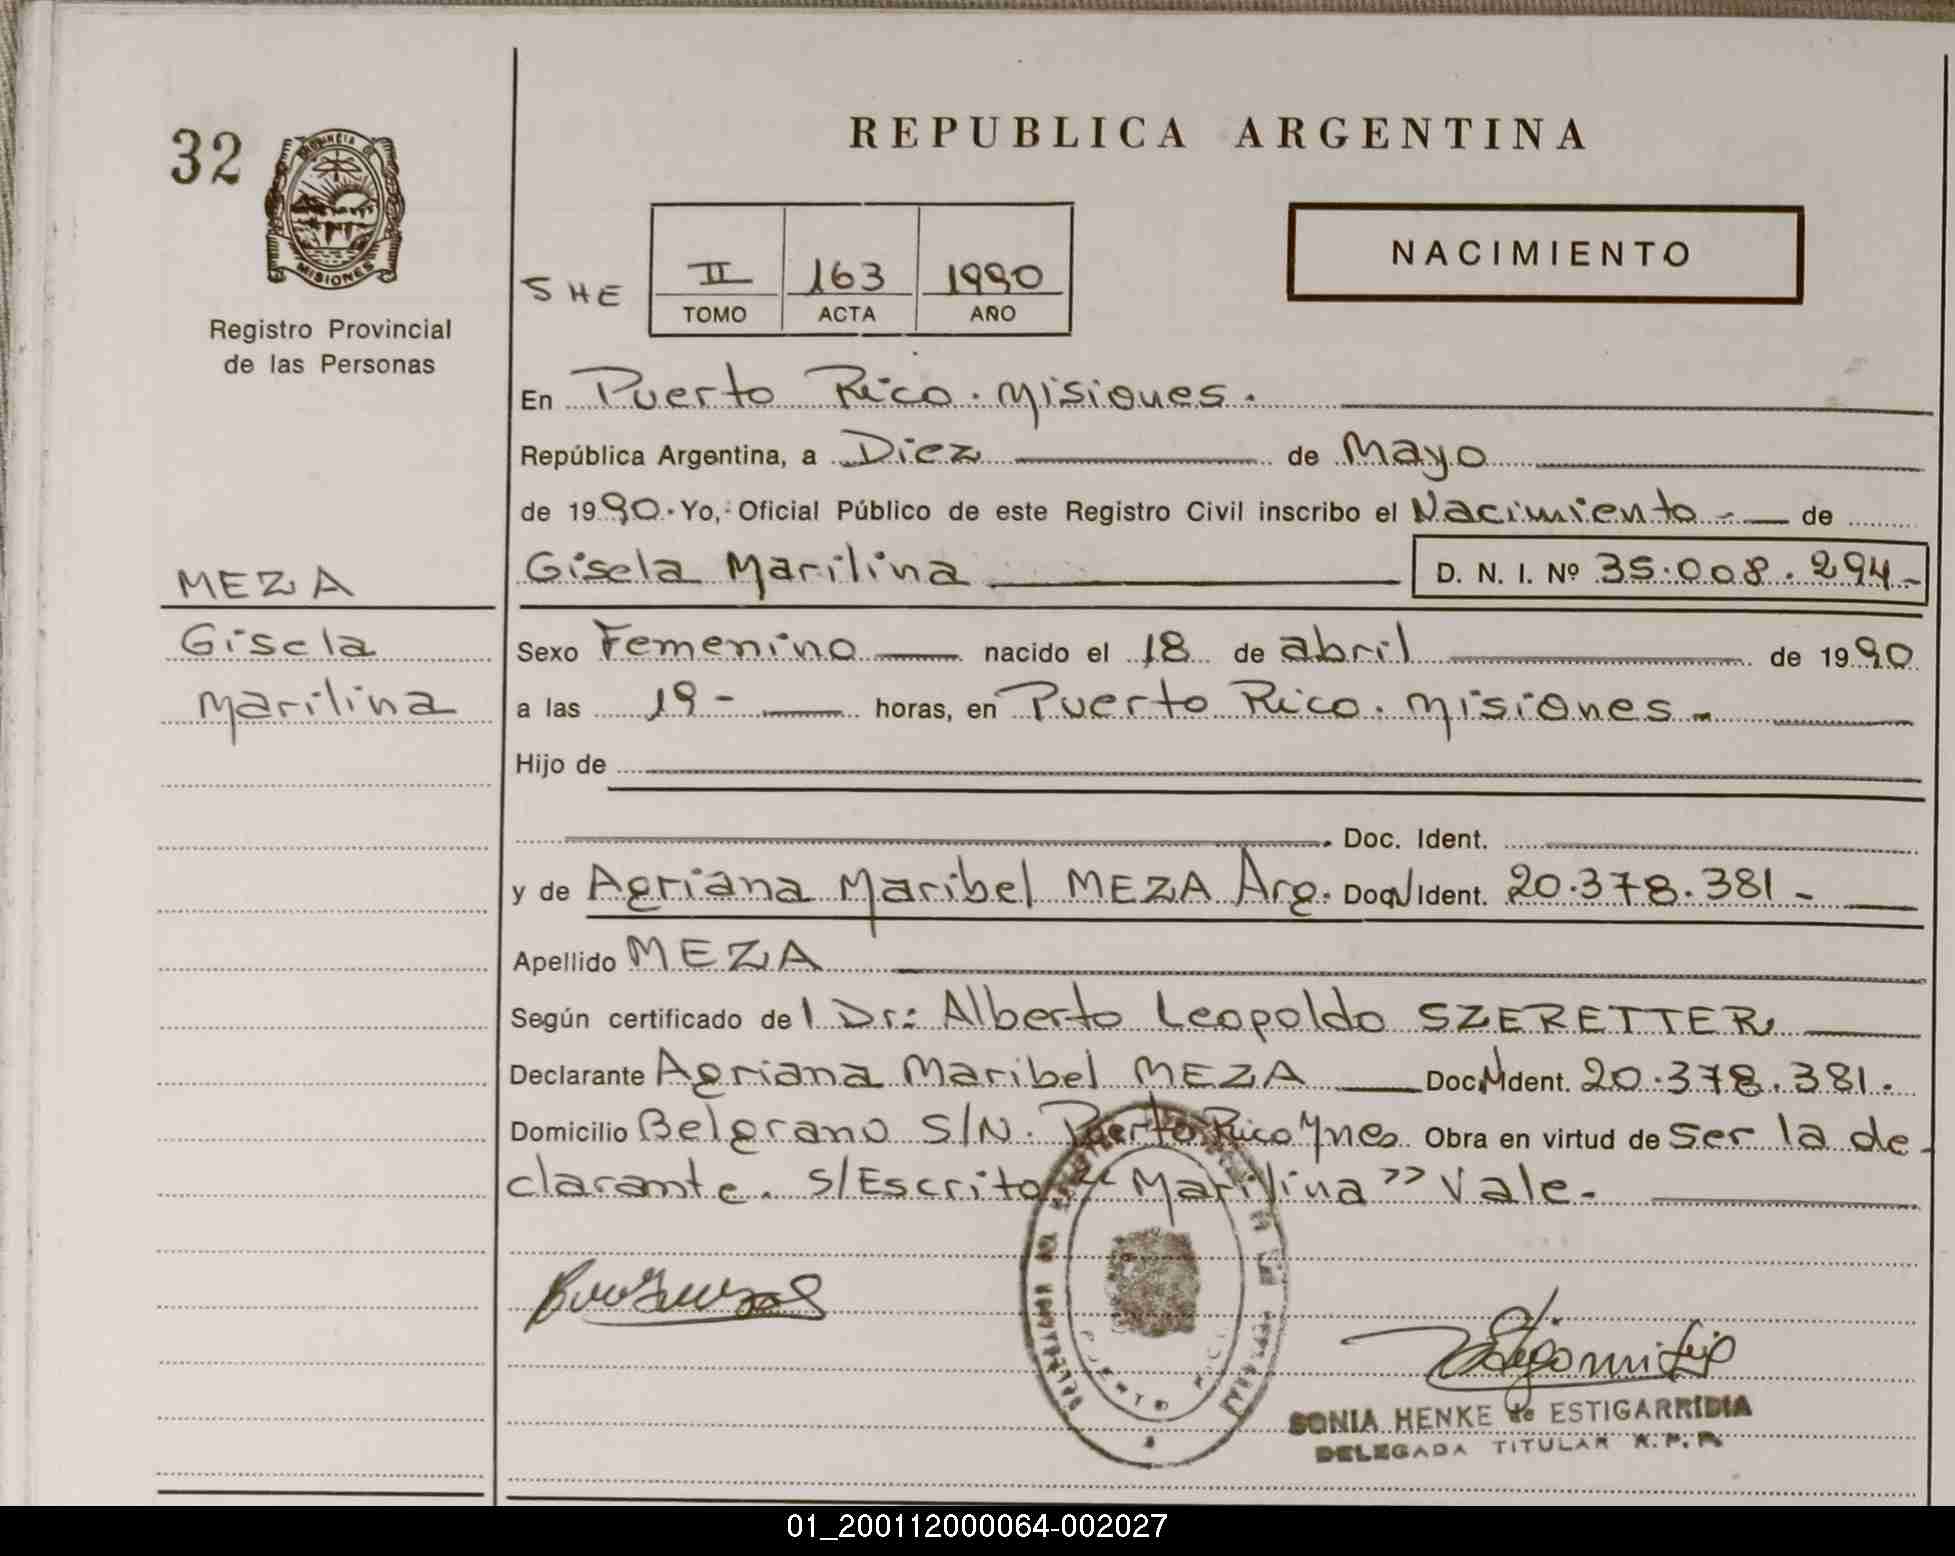 32
PROVINCIA DE
MISIONES
Registro Provincial
de las Personas
MEZA
Gisela
Marilina
REPUBLICA ARGENTINA
NACIMIENTO
SHE
II 163 1990
TOMO ACTA AÑO
En Puerto Rico. Misiones.
República Argentina, a Diez de Mayo
de 1990. Yo, Oficial Público de este Registro Civil inscribo el Nacimiento - de
Gisela Marilina D. N. I. Nº 35.008.294-
Sexo Femenino nacido el 18 de abril de 1990
a las 19- horas, en Puerto Rico. Misiones.
Hijo de
Doc. Ident.
y de Agriana Maribel MEZA Arg. Doc. Ident. 20.378.381-
Apellido MEZA
Según certificado del Dr: Alberto Leopoldo SZERETTER
Declarante Agriana Maribel MEZA Doc. Ident. 20.378.381.
Domicilio Belgrano S/N. Puerto Rico Mnes. Obra en virtud de ser la de-
clarante. S/Escrito "Marilina" Vale-
PUERTO RICO
SONIA HENKE de ESTIGARRIBIA
DELEGADA TITULAR R.P.P.
01_200112000064-002027